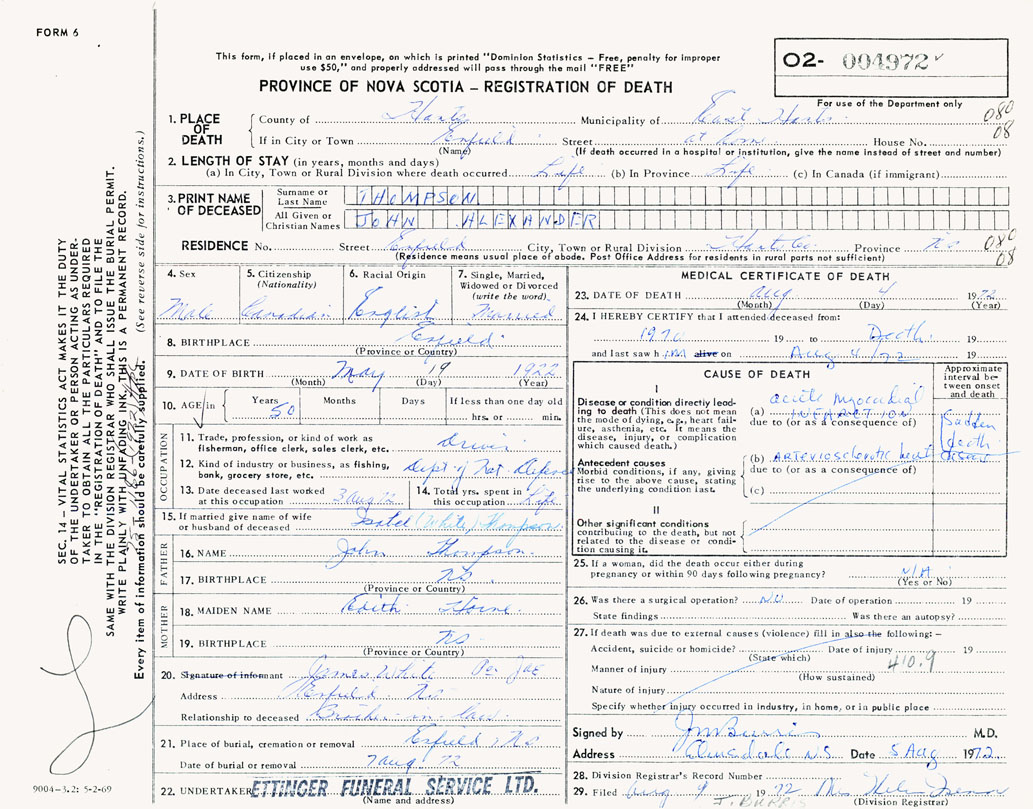 FORM 6
This form, if placed in an envelope, on which is printed "Dominion Statistics – Free, penalty for improper
use $50," and properly addressed will pass through the mail "FREE"
O2- 004972
For use of the Department only
PROVINCE OF NOVA SCOTIA – REGISTRATION OF DEATH
1. PLACE OF DEATH
County of Hants Municipality of East Hants 080
If in City or Town Enfield Street at home House No. 08
(Name) (If death occurred in a hospital or institution, give the name instead of street and number)
2. LENGTH OF STAY (in years, months and days)
(a) In City, Town or Rural Division where death occurred Life (b) In Province Life (c) In Canada (if immigrant)
3. PRINT NAME OF DECEASED
Surname or Last Name THOMPSON
All Given or Christian Names JOHN ALEXANDER
RESIDENCE No. Street Enfield City, Town or Rural Division Hants Co. Province N.S. 080
(Residence means usual place of abode. Post Office Address for residents in rural parts not sufficient) 08
4. Sex
Male
5. Citizenship
(Nationality)
Canadian
6. Racial Origin
English
7. Single, Married,
Widowed or Divorced
(write the word)
Married
8. BIRTHPLACE Enfield
(Province or Country)
9. DATE OF BIRTH May 19 1922
(Month) (Day) (Year)
10. AGE in
Years Months Days If less than one day old
50 hrs. or min.
OCCUPATION
11. Trade, profession, or kind of work as
fisherman, office clerk, sales clerk, etc.
12. Kind of industry or business, as fishing,
bank, grocery store, etc. Dept of Nat Defence
13. Date deceased last worked
at this occupation 3 Aug 72
14. Total yrs. spent in
this occupation Life
15. If married give name of wife
or husband of deceased Isabel (White) Thompson
FATHER
16. NAME John Thompson
17. BIRTHPLACE N.S.
(Province or Country)
MOTHER
18. MAIDEN NAME Edith Horne
19. BIRTHPLACE N.S.
(Province or Country)
20. Signature of informant James White Per
Address Enfield N.S.
Relationship to deceased Brother in law
21. Place of burial, cremation or removal Enfield, N.S.
Date of burial or removal 7 Aug 72
22. UNDERTAKER ETTINGER FUNERAL SERVICE LTD.
(Name and address)
MEDICAL CERTIFICATE OF DEATH
23. DATE OF DEATH Aug 4 1972
(Month) (Day) (Year)
24. I HEREBY CERTIFY that I attended deceased from:
1970 19 to Death 19
and last saw him alive on Aug 4/72 19
CAUSE OF DEATH
Approximate
interval be-
tween onset
and death
I
Disease or condition directly lead-
ing to death (This does not mean
the mode of dying, e.g., heart fail-
ure, asthenia, etc. It means the
disease, injury, or complication
which caused death.)
acute myocardial
(a) INFARCTION
due to (or as a consequence of)
Sudden
death
Antecedent causes
Morbid conditions, if any, giving
rise to the above cause, stating
the underlying condition last.
(b) ARTERIOSCLEROTIC heart disease
due to (or as a consequence of)
(c)
II
Other significant conditions
contributing to the death, but not
related to the disease or condi-
tion causing it.
25. If a woman, did the death occur either during
pregnancy or within 90 days following pregnancy? N/A
(Yes or No)
26. Was there a surgical operation? NO Date of operation 19
State findings Was there an autopsy?
27. If death was due to external causes (violence) fill in also the following: –
Accident, suicide or homicide? Date of injury 19
(State which) 410.9
Manner of injury
(How sustained)
Nature of injury
Specify whether injury occurred in industry, in home, or in public place
Signed by JM Burris M.D.
Address Elmsdale N.S. Date 5 Aug 1972
28. Division Registrar's Record Number
29. Filed Aug 9 1972 Mrs Helen
J. BURRIS (Division Registrar)
SEC. 14 – VITAL STATISTICS ACT MAKES IT THE DUTY
OF THE UNDERTAKER OR PERSON ACTING AS UNDER-
TAKER TO OBTAIN ALL THE PARTICULARS REQUIRED
IN THE "REGISTRATION OF DEATH" AND TO FILE THE
SAME WITH THE DIVISION REGISTRAR WHO SHALL ISSUE THE BURIAL PERMIT.
WRITE PLAINLY WITH UNFADING INK. THIS IS A PERMANENT RECORD.
Every item of information should be carefully supplied. (See reverse side for instructions.)
9004-3.2: 5-2-69